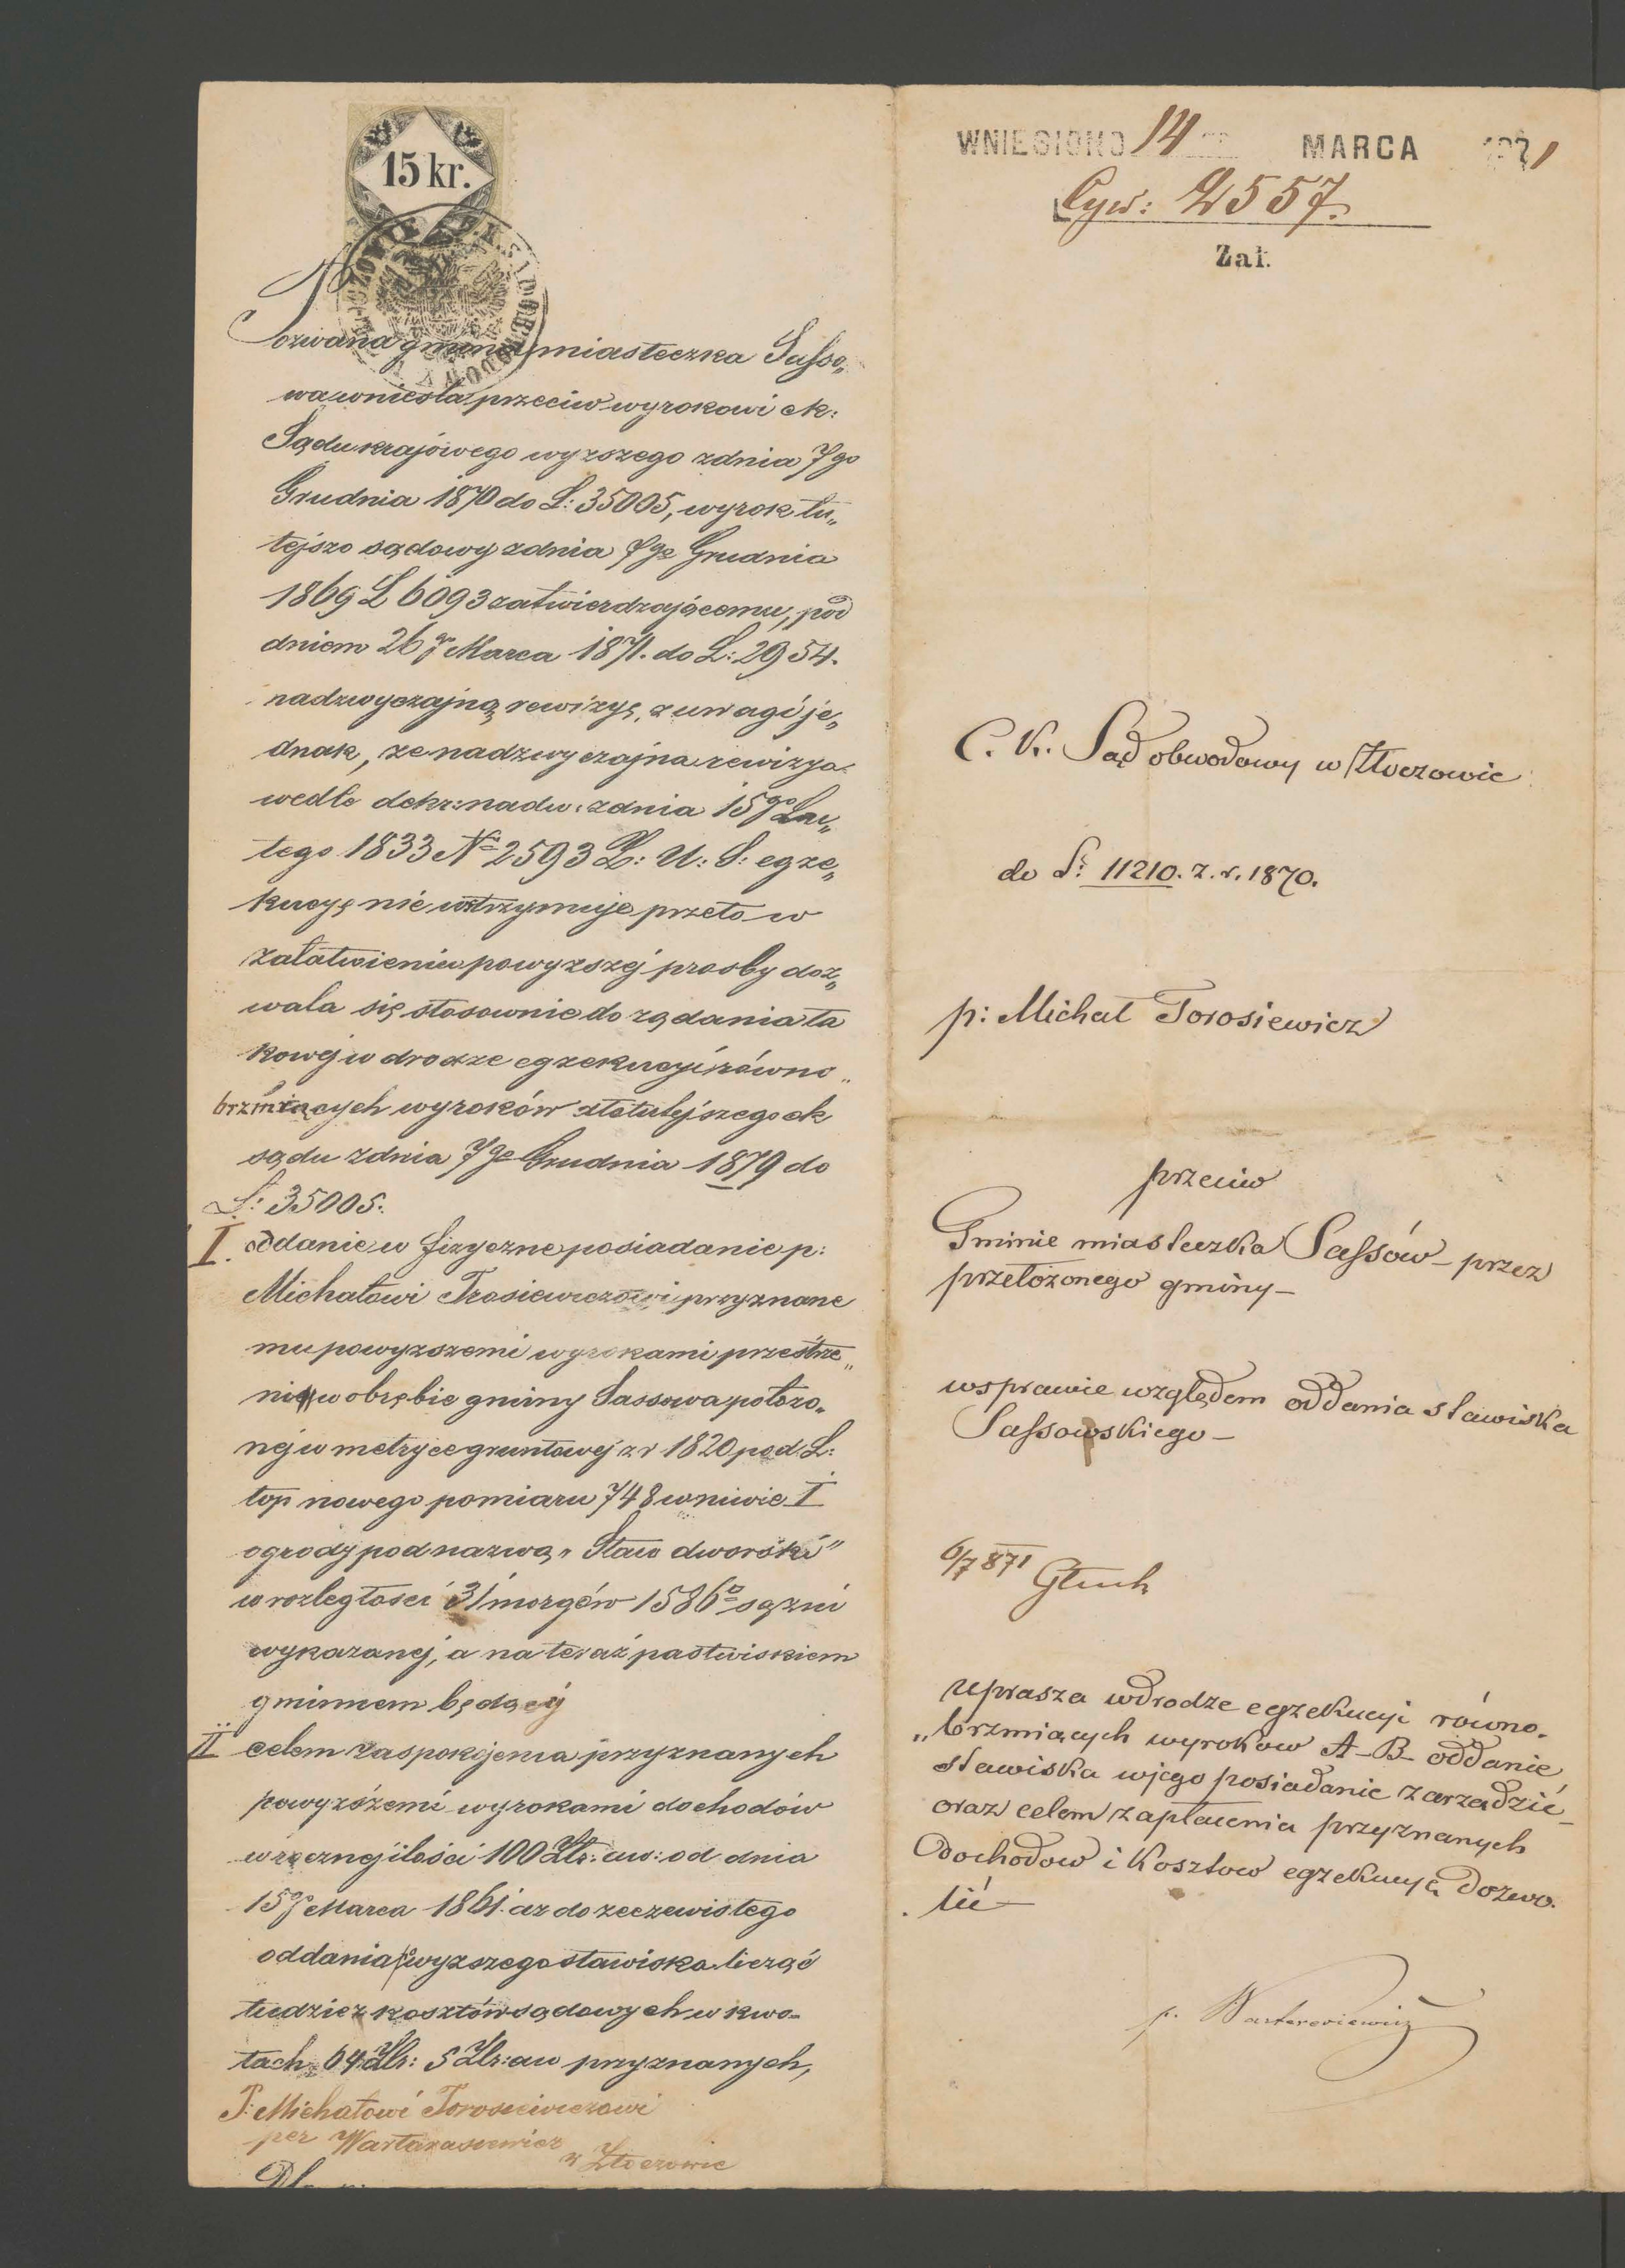 15 kr.
Pozwana gmina miasteczka Sasso„
wa wniosła przeciw wyrokowi ck:
Sądu krajowego wyzszego zdnia 7go
Grudnia 1870 do L: 35005, wyrok tu„
tejszo sądowy zdnia 7go Grudnia
1869 L 6093 zatwierdzającemu, pod
dniem 26go Marca 1871. do L: 2954.
nadzwyczajną rewizyę, z uwagi je„
dnak, ze nadzwyczajna rewizya
wedle dekr: nadw: zdnia 15go Lu„
tego 1833 No 2593 Z: U: S: egze„
kucyę nie wstrzymuje przeto w
załatwieniu powyzszej prosby doz„
wala się stosownie do ządania ta
kowej w drodze egzekucyi równo„
brzmiących wyroków tutejszego ck
sądu zdnia 7go Grudnia 1879 do
L: 35005.
I. oddanie w fizyczne posiadanie p:
Michałowi Trosiewiczowi przyznane
mu powyzszemi wyrokami przestrze„
ni w obrębie gminy Sassowa połozo„
nej w metryce gruntowej z r 1820 pod L:
top nowego pomiaru 748 w niwie I
ogrody pod nazwą „Staw dworski"
w rozległości 31 morgów 1586□ sązni
wykazanej, a na teraz pastwiskiem
gminnem będącej
II celem zaspokojenia przyznanych
powyzszemi wyrokami dochodów
w rocznej ilości 100 Złr: aw: od dnia
15go Marca 1861. az do rzeczewistego
oddania powyzszego stawiska licząć
tudziez kosztów sądowych w kwo„
tach 64 Złr: 5 Złr: aw przyznanych,
P: Michałowi Torosiewiczowi
per Wartarasiewicz
w Złoczowie
WNIESIONO 14 MARCA 1871
Cyw: 2557.
Zał.
C. K. Sąd obwodowy w Złoczowie
do L: 11210. z. r. 1870.
p: Michał Torosiewicz
przeciw
Gminie miasteczka Sassów – przez
przełozonego gminy –
w sprawie względem oddania stawiska
Sassowskiego –
6/7 871 Głuch
uprasza wdrodze egzekucyi równo„
„brzmiących wyroków A–B– oddanie
stawiska wjego posiadanie zarządzić –
oraz celem zapłacenia przyznanych
Dochodow i kosztow egzekucyę dozwo„
„lić –